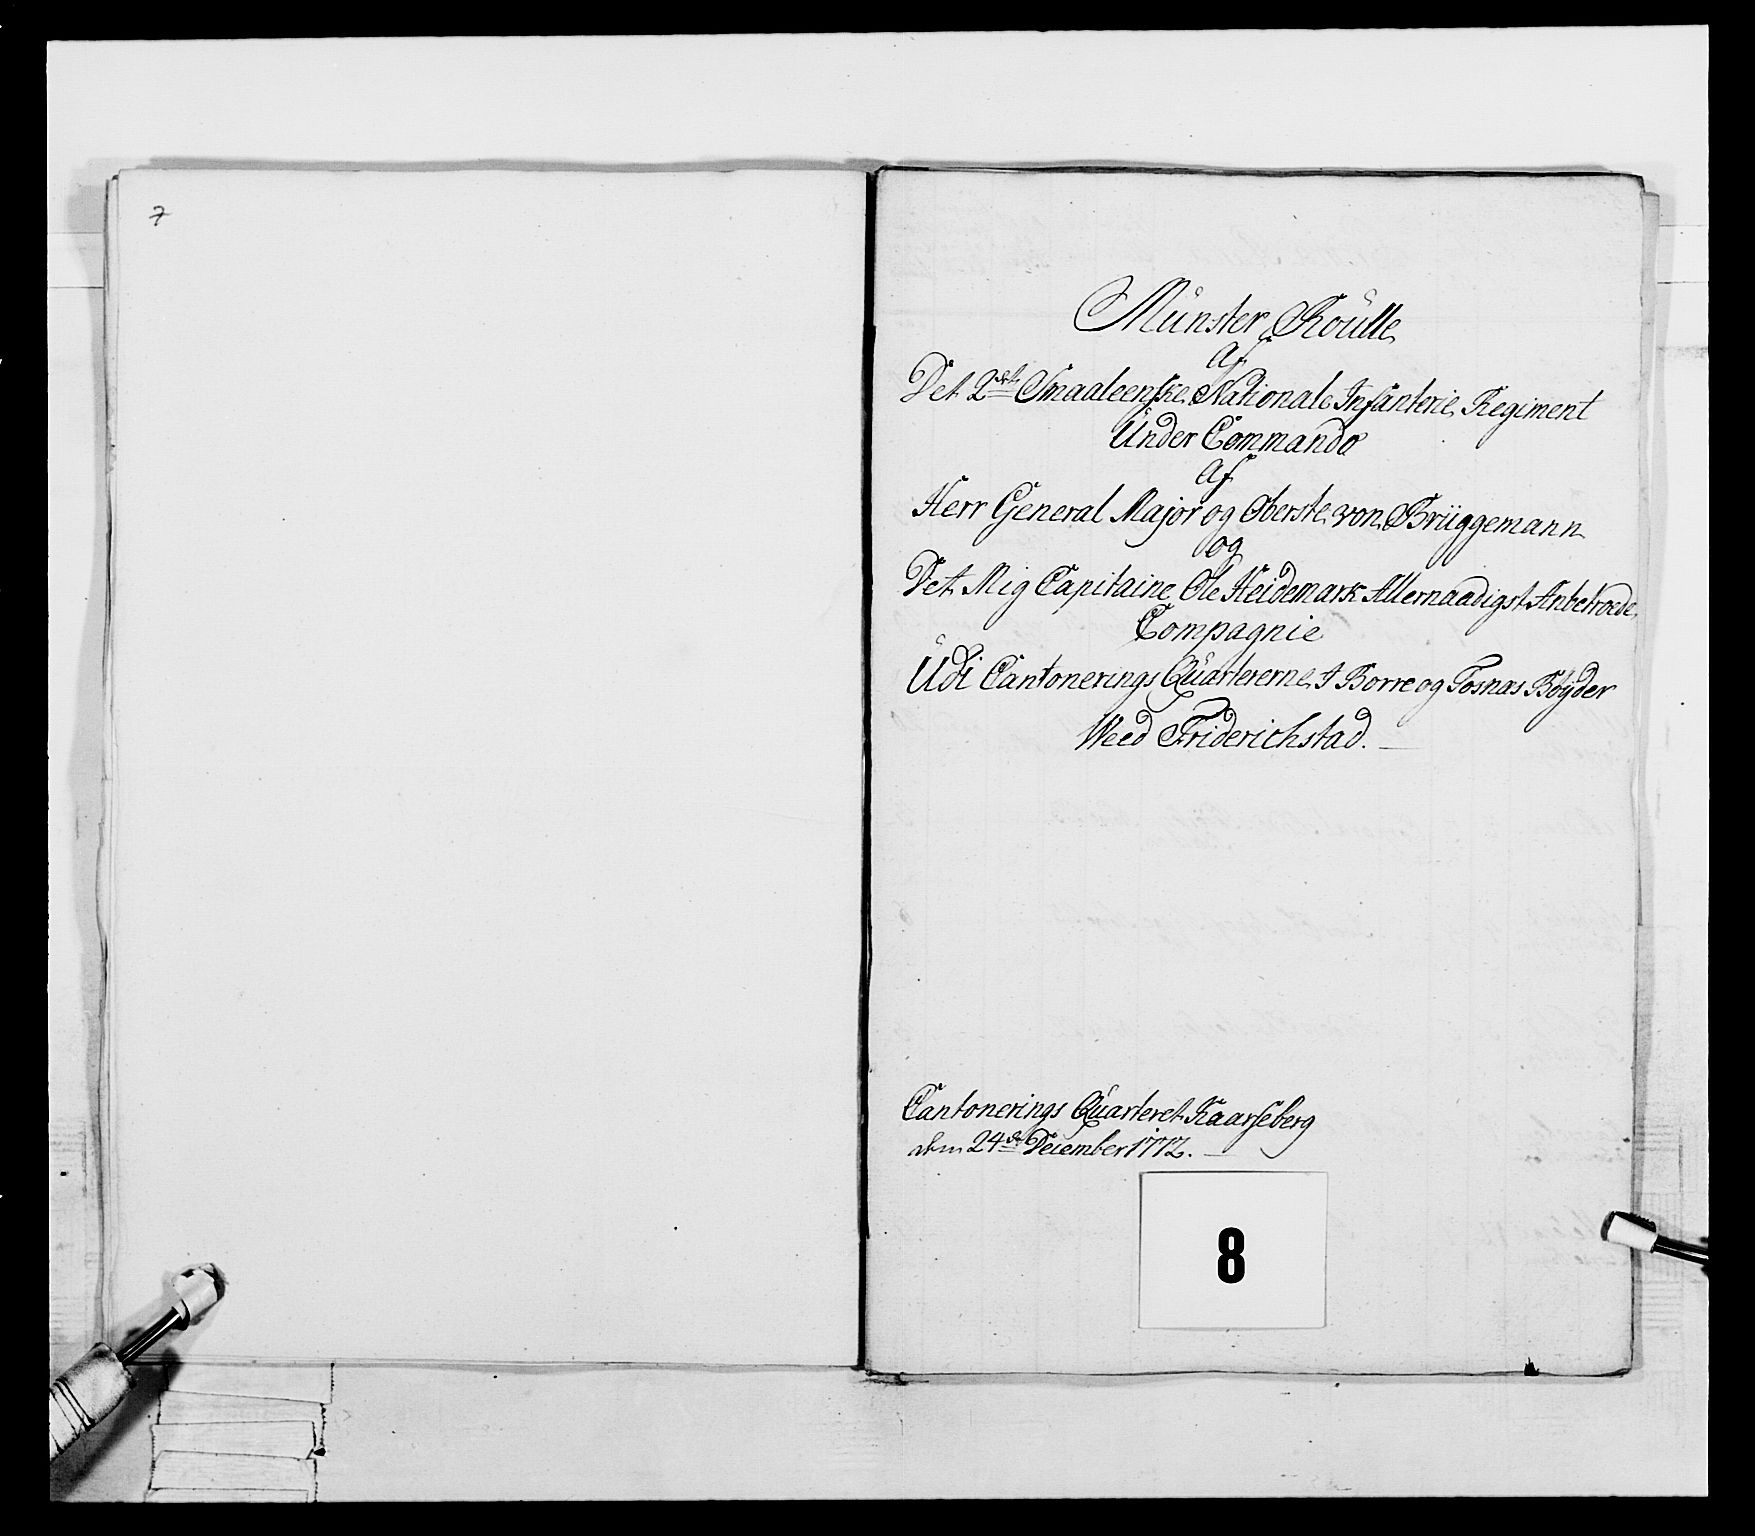 7
Münster Roülle
Af
Det 2det Smaaleenske Nationale Infanterie Regiment
Ünder Commando
Af
Herr General Major og Oberste von Brüggemann
og
Det Mig Capitaine Ole Heidemark Allernaadigst Anbetroede
Compagnie
Üdi Cantonerings Qüartererne I Borre og Tosnæs Bøÿder
Weed Friderichstad.
Cantonerings Qüarteret Kaarseberg
dem 24de December 1772.
8